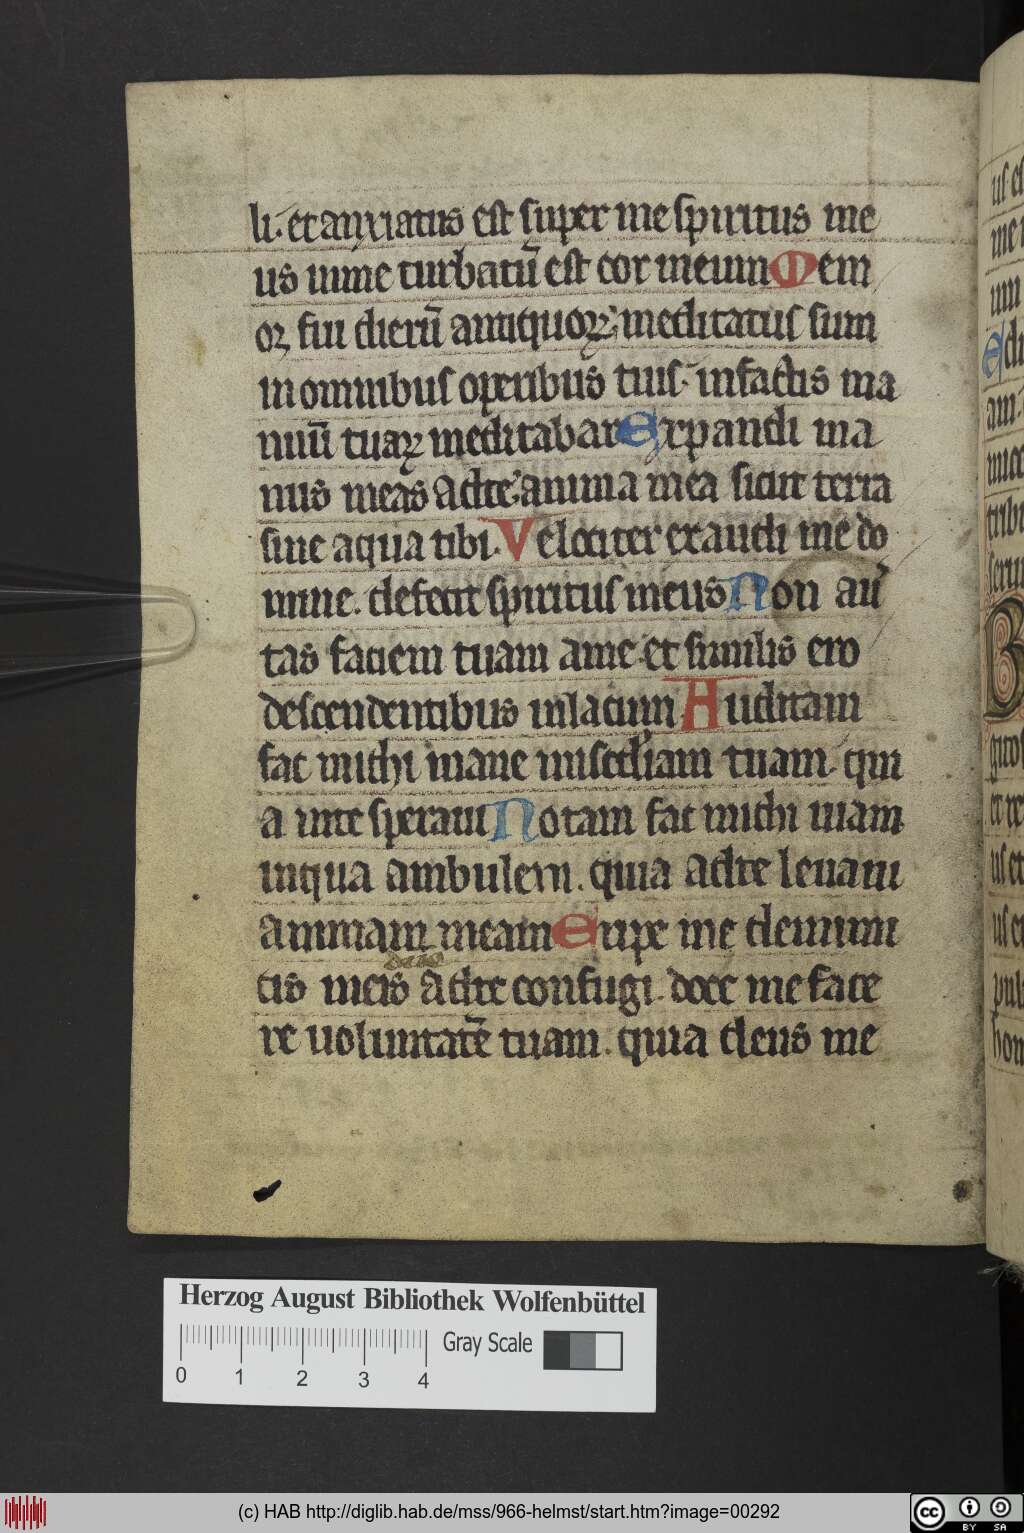 li. et anxiatus est super me spiritus me
us inme turbatū est cor meum Mem
oꝝ fui dierū antiquoꝝ. meditatus sum
in omnibus operibus tuis. infactis ma
nuū tuaꝝ meditabar Expandi ma
nus meas adte. anima mea sicut terra
sine aqua tibi. Velociter exaudi me do
mine. defecit spiritus meus Non au᷑
tas faciem tuam ame. et similis ero
descendentibus inlacum Auditam
fac michi mane miscdiam tuam. qui
a inte speraui Notam fac michi uiam
inqua ambulem. quia adte leuaui
animam meam Eripe me deinimi
cis meis adte confugi. doce me face
re uoluntatē tuam. quia deus me
Herzog August Bibliothek Wolfenbüttel
Gray Scale
0 1 2 3 4
(c) HAB http://diglib.hab.de/mss/966-helmst/start.htm?image=00292
cc BY SA